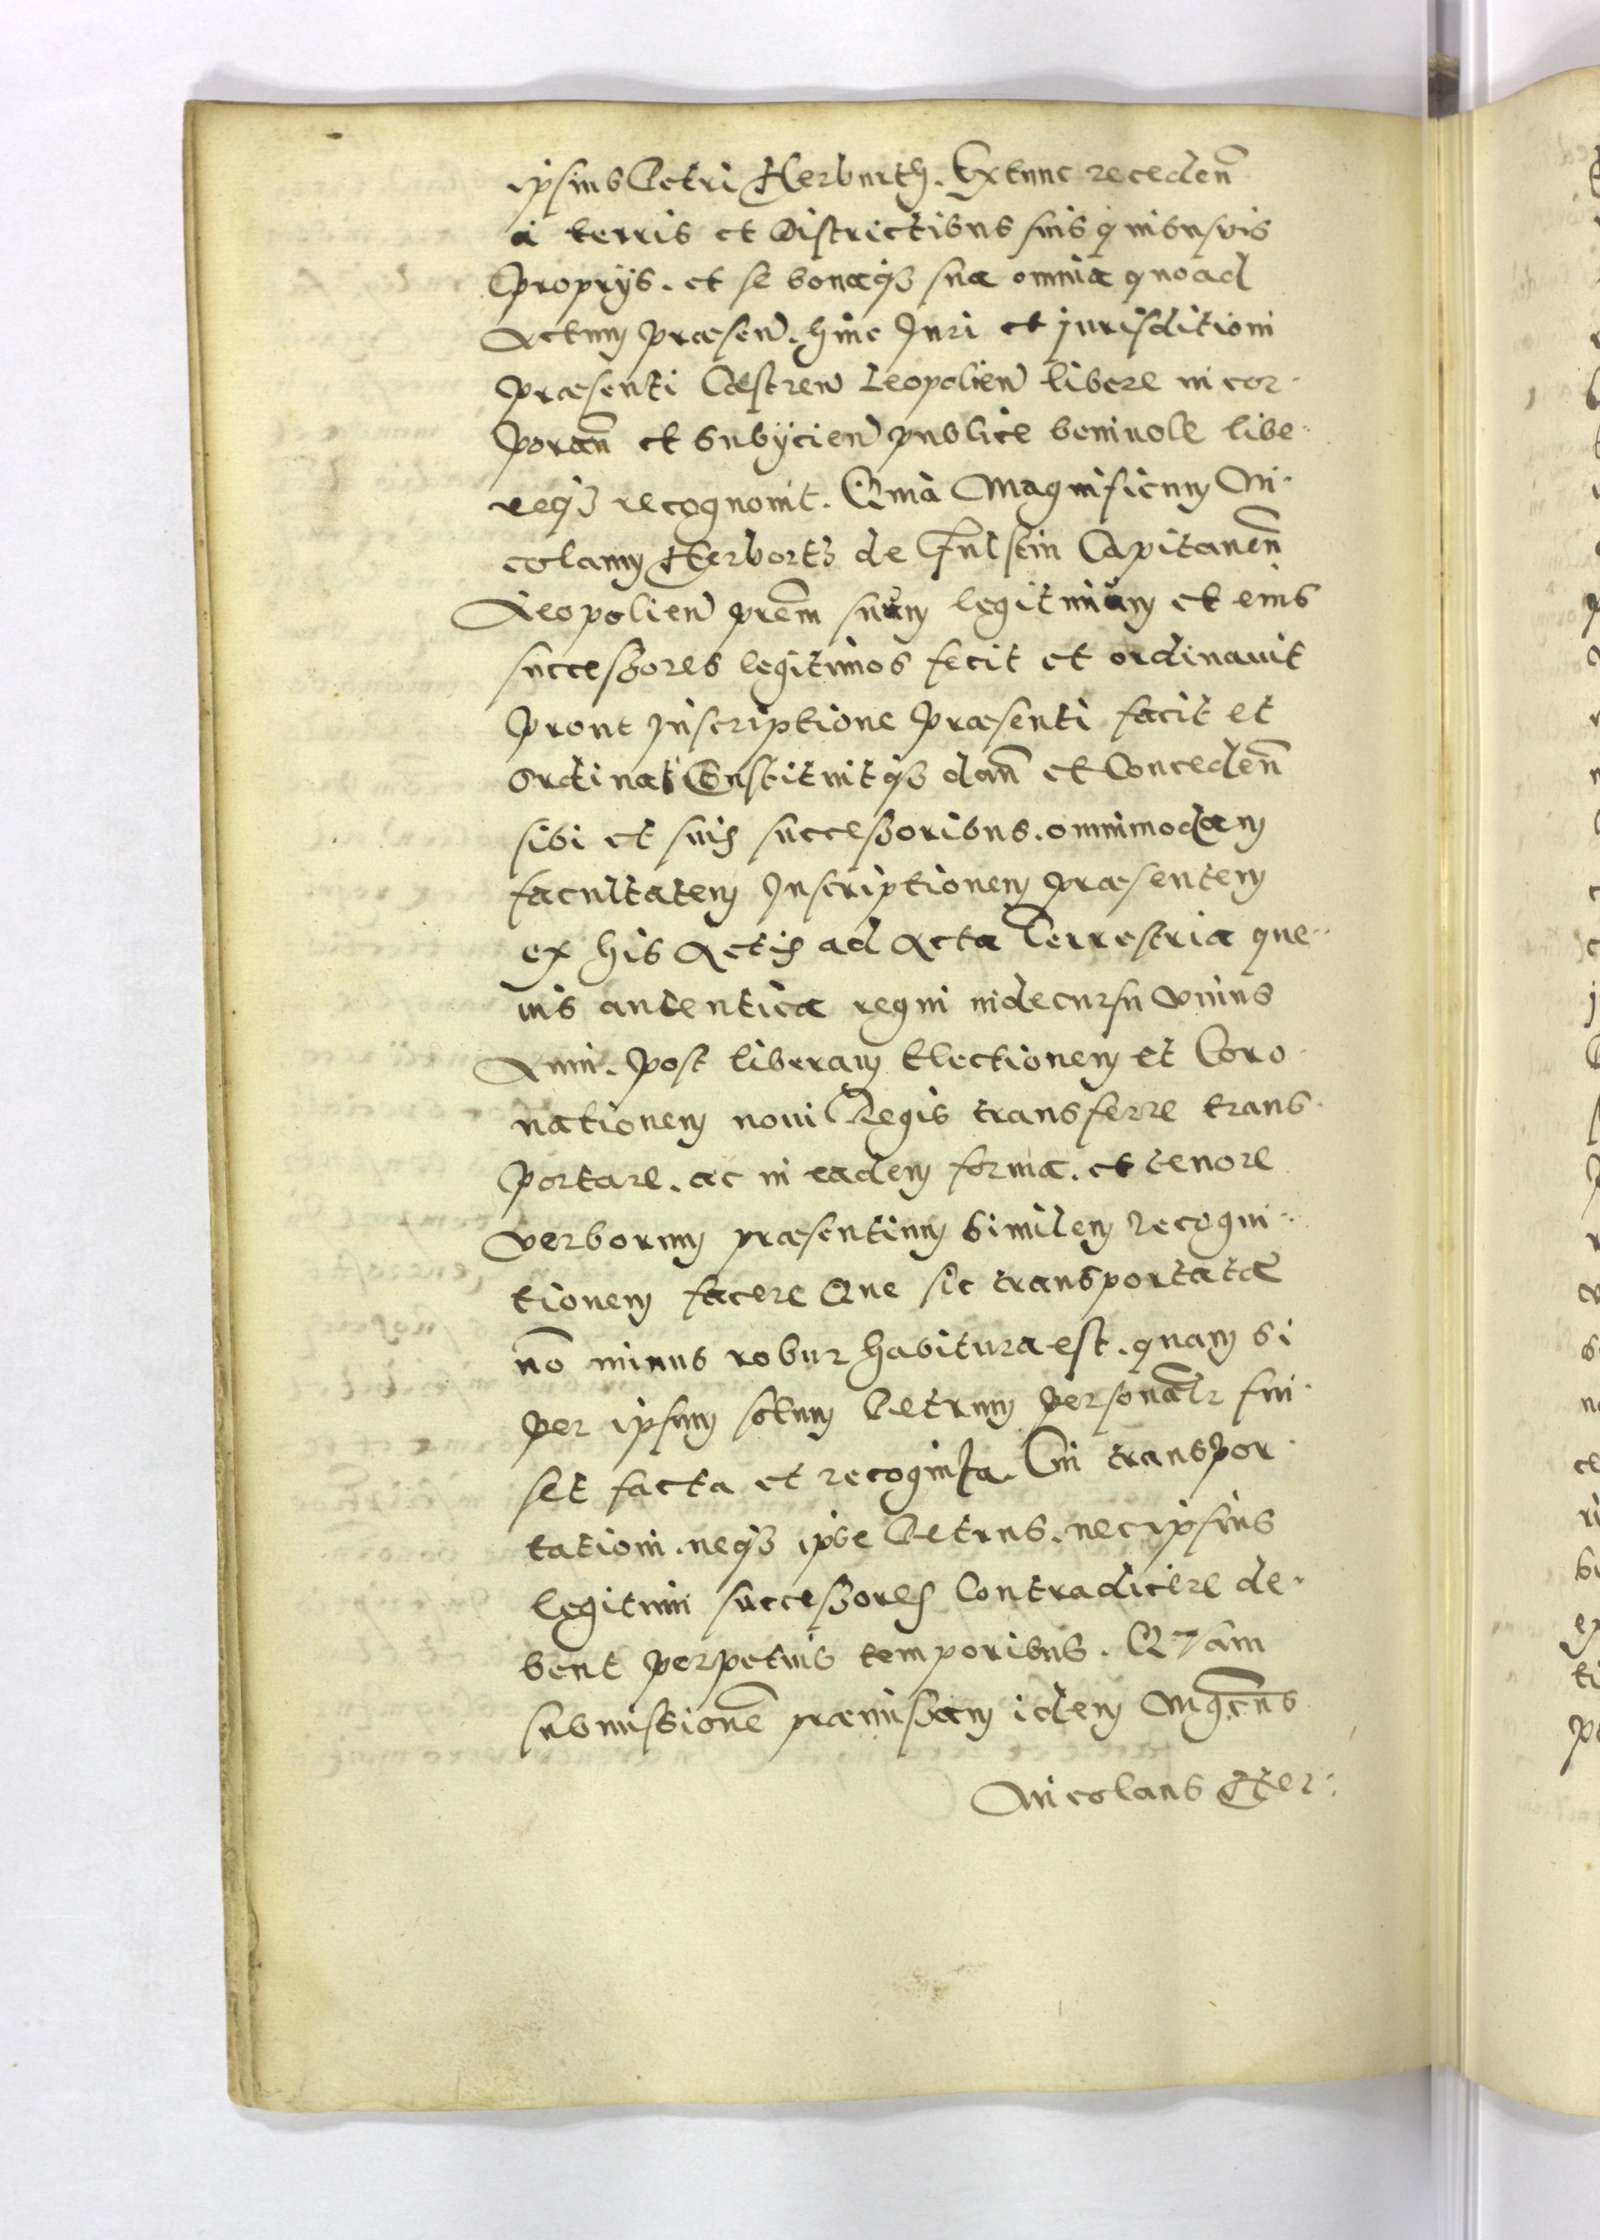 ipsius Petri Herburth. Extunc receden̄
a terris et Districtibus suis quibusvis
proprijs. et se bonaq3 sua omnia quoad
Actum præsen. huic Juri et jurisditioni
præsenti Castren Leopolien libere incor-
poran̄ et subijcien publice benivole libe-
req3 recognovit. Quia Magnificum Ni-
colaum Herbortħ de Fulstin Capitaneū
Leopolien prēm suum legitimum et eius
successores legitimos fecit et ordinavit
prout Inscriptione præsenti facit et
ordinat Constituitq3 dan̄ et Conceden̄
sibi et suis successoribus. omnimodam
facultatem Inscriptionem præsentem
ex his Actis ad Acta Terrestria que-
vis autentica regni in decursu vnius
Anni. post liberam Electionem et Coro-
nationem novi Regis transferre trans-
portare. ac in eadem forma. et tenore
verborum præsentium similem recogni-
tionem facere Que sic transportata
nō minus robur habitura est. quam si
per ipsum sctum Petrum personalr fui-
set facta et recognita. Cui transpor-
tationi. neq3 ipse Petrus. nec ipsius
legitimi successores Contradicere de-
bent perpetuis temporibus. Quam
submissionē præmissam idem Mgcūs
Nicolaus Her-